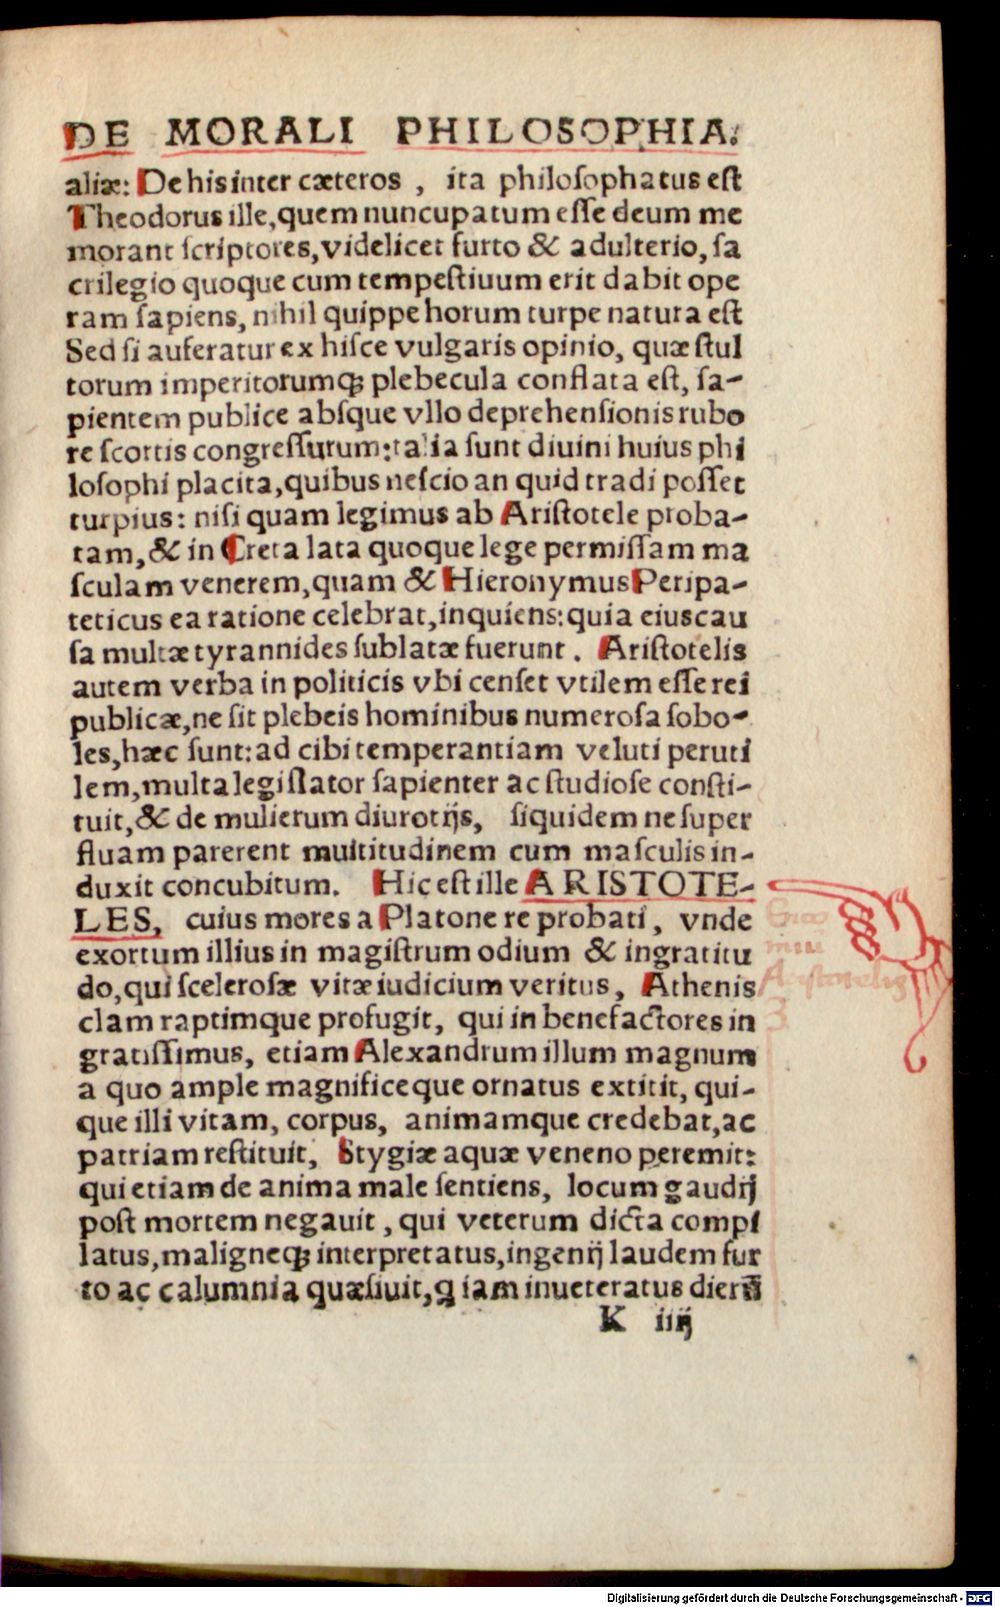 DE MORALI PHILOSOPHIA.
aliæ: De his inter cæteros , ita philoſophatus eſt
Theodorus ille, quem nuncupatum eſſe deum me
morant ſcriptores, videlicet furto & adulterio, ſa
crilegio quoque cum tempeſtiuum erit dabit ope
ram ſapiens, nihil quippe horum turpe natura eſt
Sed ſi auferatur ex hiſce vulgaris opinio, quæ ſtul
torum imperitorumqꝫ plebecula conflata eſt, ſa-
pientem publice abſque vllo deprehenſionis rubo
re ſcortis congreſſurum: talia ſunt diuini huius phi
loſophi placita, quibus neſcio an quid tradi poſſet
turpius: niſi quam legimus ab Ariſtotele proba-
tam, & in Creta lata quoque lege permiſſam ma
ſculam venerem, quam & Hieronymus Peripa-
teticus ea ratione celebrat, inquiens: quia eius cau
ſa multæ tyrannides ſublatæ fuerunt . Ariſtotelis
autem verba in politicis vbi cenſet vtilem eſſe rei
publicæ, ne ſit plebeis hominibus numeroſa ſobo-
les, hæc ſunt: ad cibi temperantiam veluti peruti
lem, multa legiſlator ſapienter ac ſtudioſe conſti-
tuit, & de mulierum diurotijs, ſiquidem ne ſuper
fluam parerent multitudinem cum maſculis in-
duxit concubitum. Hic eſt ille ARISTOTE-
LES, cuius mores a Platone reprobati, vnde
exortum illius in magiſtrum odium & ingratitu
do, qui ſceleroſæ vitæ iudicium veritus, Athenis
clam raptimque profugit, qui in benefactores in
gratiſſimus, etiam Alexandrum illum magnum
a quo ample magnificeque ornatus extitit, qui-
que illi vitam, corpus, animamque credebat, ac
patriam reſtituit, Stygiæ aquæ veneno peremit:
qui etiam de anima male ſentiens, locum gaudij
poſt mortem negauit , qui veterum dicta compi
latus, maligneqꝫ interpretatus, ingenij laudem fur
to ac calumnia quæſiuit, q iam inueteratus dierū
K iiij
Aristotelis